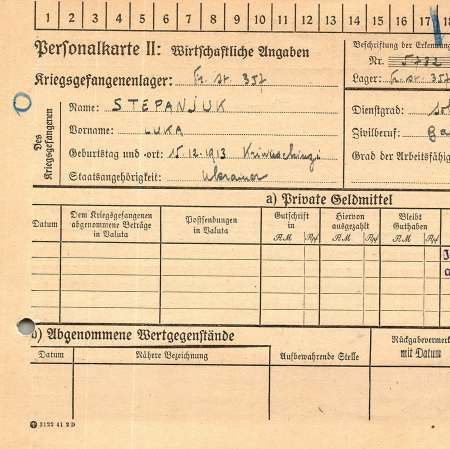 1 2 3 4 5 6 7 8 9 10 11 12 13 14 15 16 17 18
Personalkarte II: Wirtschaftliche Angaben
Beschriftung der Erkennun
Nr. 5782
Kriegsgefangenenlager: Fr. St. 357
Lager: Fr. St. 357
Des Kriegsgefangenen
Name: STEPANJUK
Dienstgrad: sol
Vorname: LUKA
Zivilberuf: Ba
Geburtstag und -ort: 15.12.1913
Grad der Arbeitsfähig
Staatsangehörigkeit: Ukrainer
a) Private Geldmittel
Datum
Dem Kriegsgefangenen abgenommene Beträge in Valuta
Postsendungen in Valuta
Gutschrift in
RM Rpf
Hiervon ausgezahlt
RM Rpf
Bleibt Guthaben
RM Rpf
b) Abgenommene Wertgegenstände
Datum
Nähere Bezeichnung
Aufbewahrende Stelle
Rückgabevermerk
mit Datum
3122 41 2 D